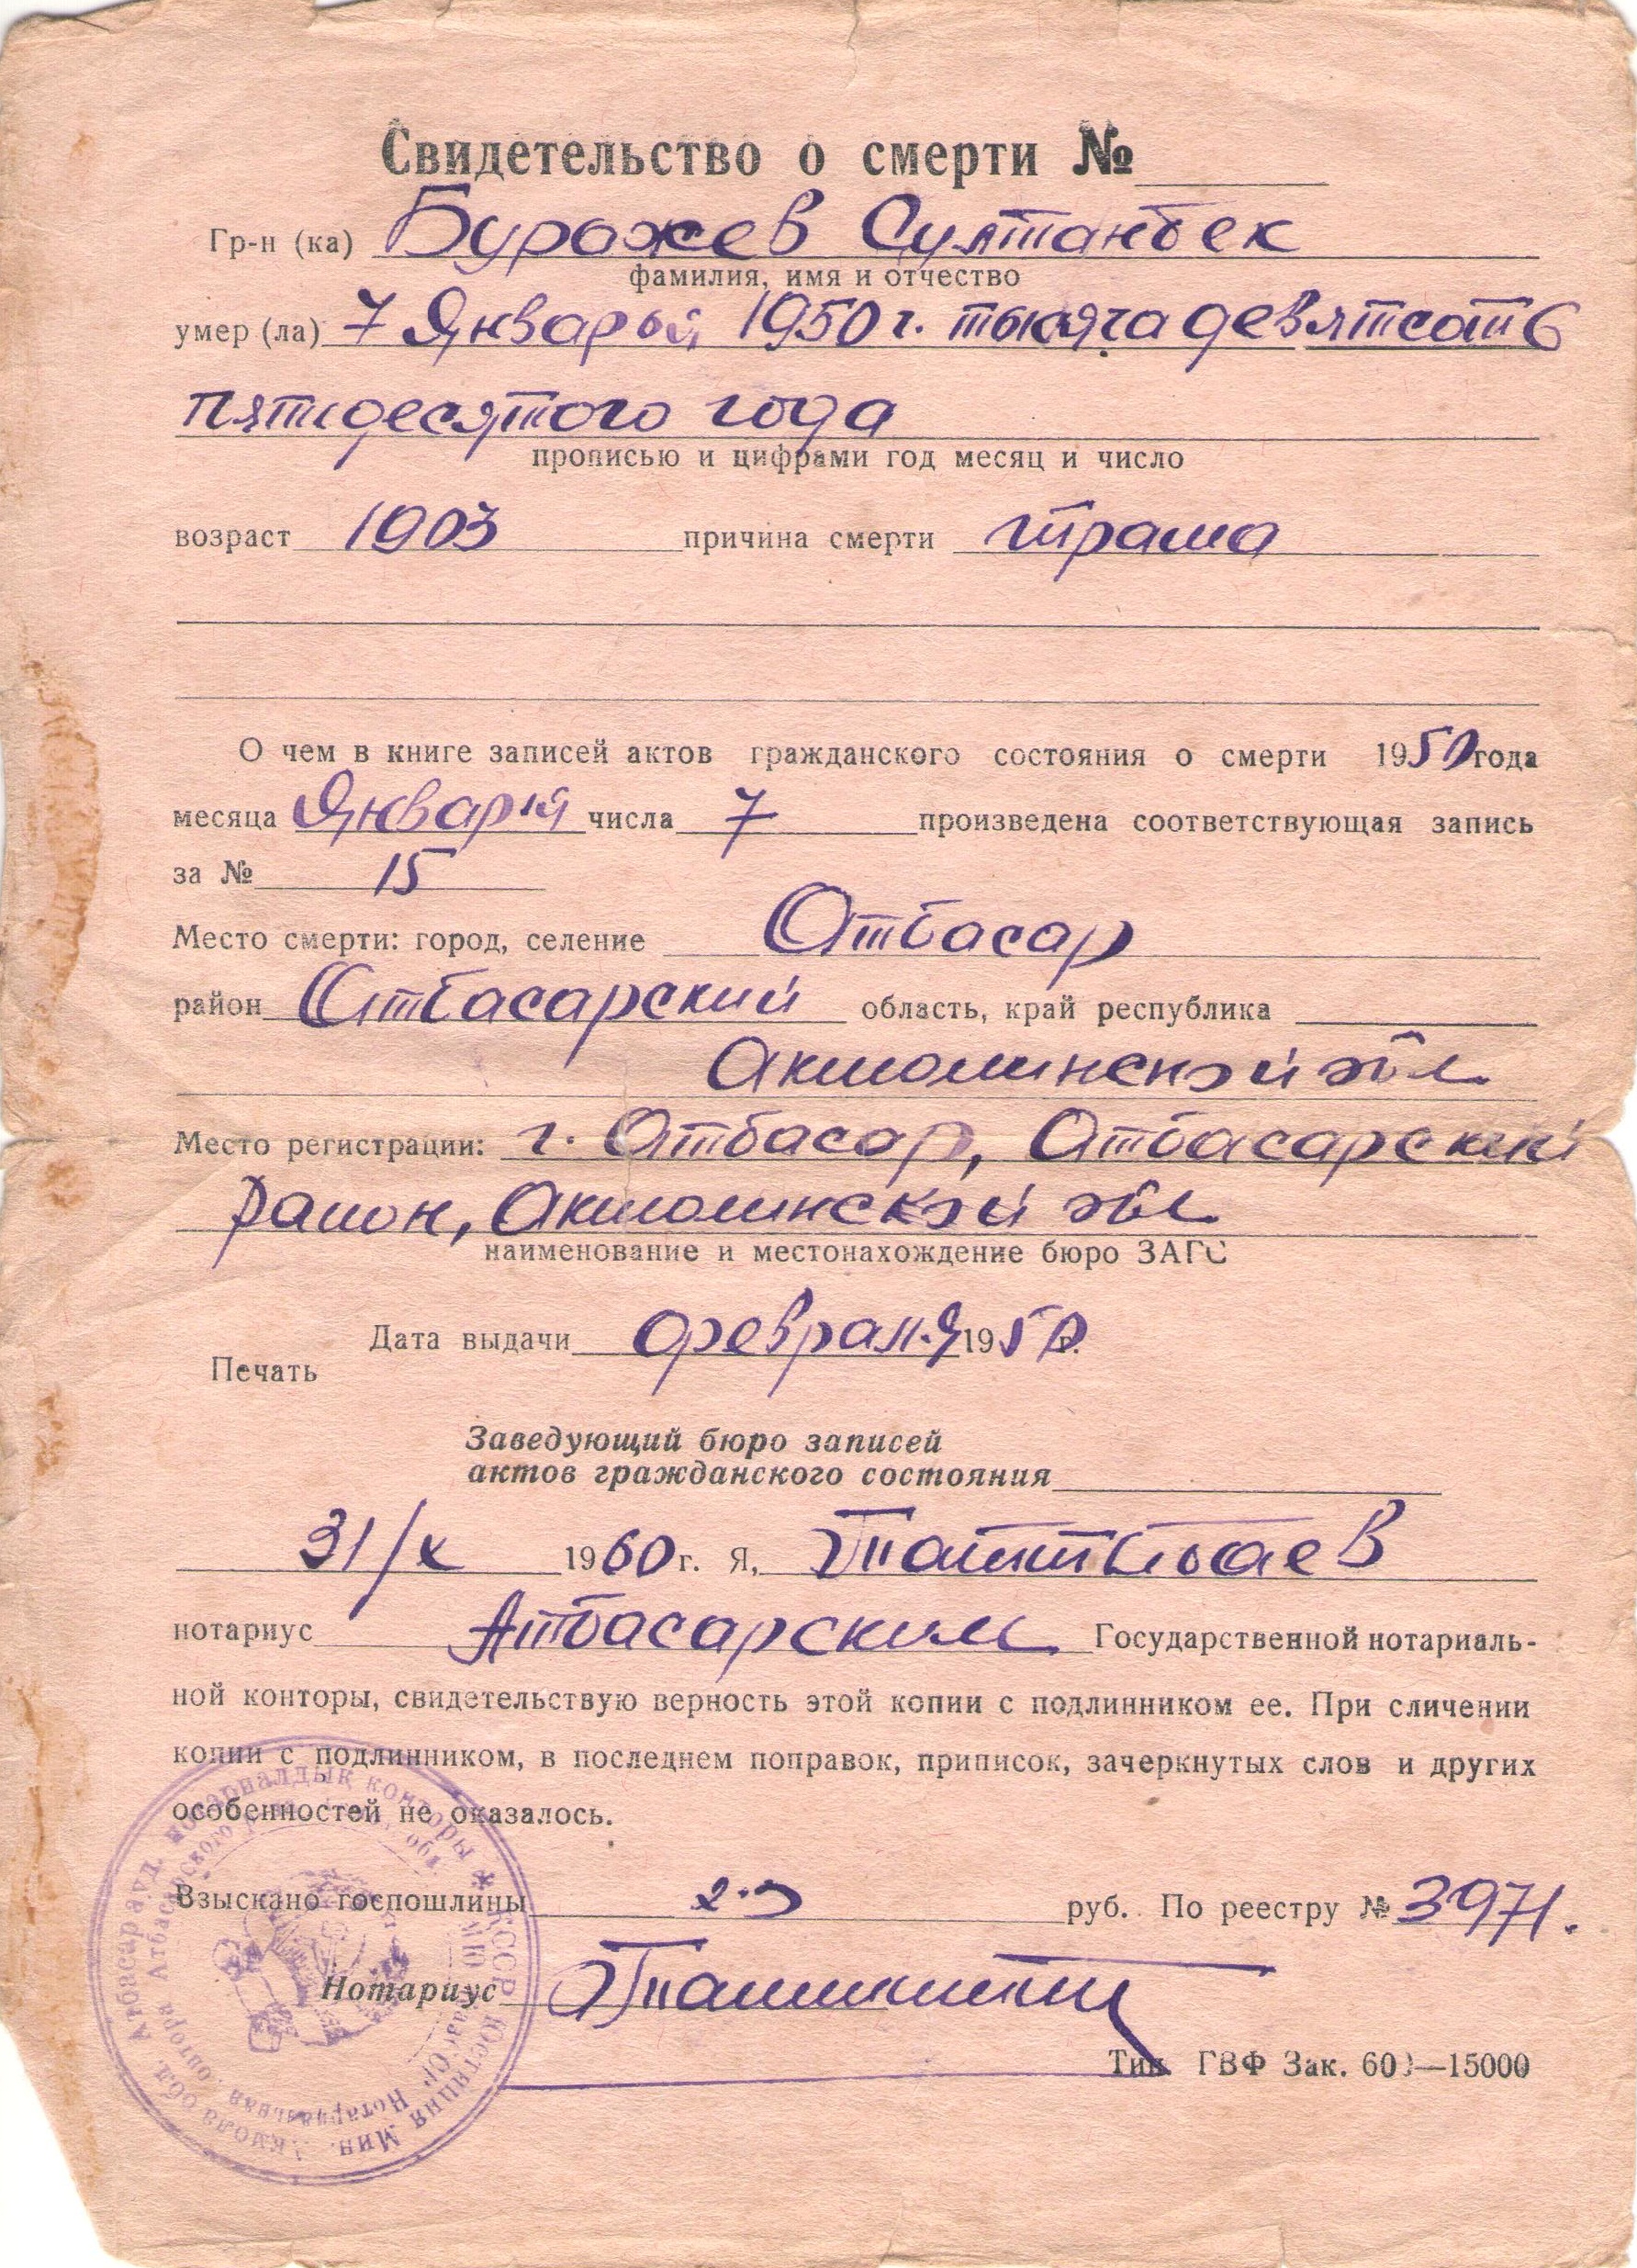 Свидетельство о смерти №
Гр-н (ка) Буражев Султанбек
фамилия, имя и отчество
умер (ла) 7 Январья 1950 г. тысяча девятсоть
пятидесятого года
прописью и цифрами год месяц и число
возраст 1903 причина смерти
О чем в книге записей актов гражданского состояния о смерти 1950 года
месяца Январия числа 7 произведена соответствующая запись
за № 15
Место смерти: город, селение Отбасар
район Отбасарский область, край республика
Акмолинской обл
Место регистрации: г. Отбасар, Отбасарский
район, Акмолинской обл
наименование и местонахождение бюро ЗАГС
Дата выдачи февраля 1950 г.
Печать
Заведующий бюро записей
актов гражданского состояния
31/X 1960 г. Я,
нотариус Атбасарским Государственной нотариаль-
ной конторы, свидетельствую верность этой копии с подлинником ее. При сличении
копии с подлинником, в последнем поправок, приписок, зачеркнутых слов и других
особенностей не оказалось.
Взыскано госпошлины руб. По реестру № 3971.
Нотариус
Тип ГВФ Зак. 60 —15000
Атбасар ауд. нотариалдық конторы * КССР Юстиция Мин.